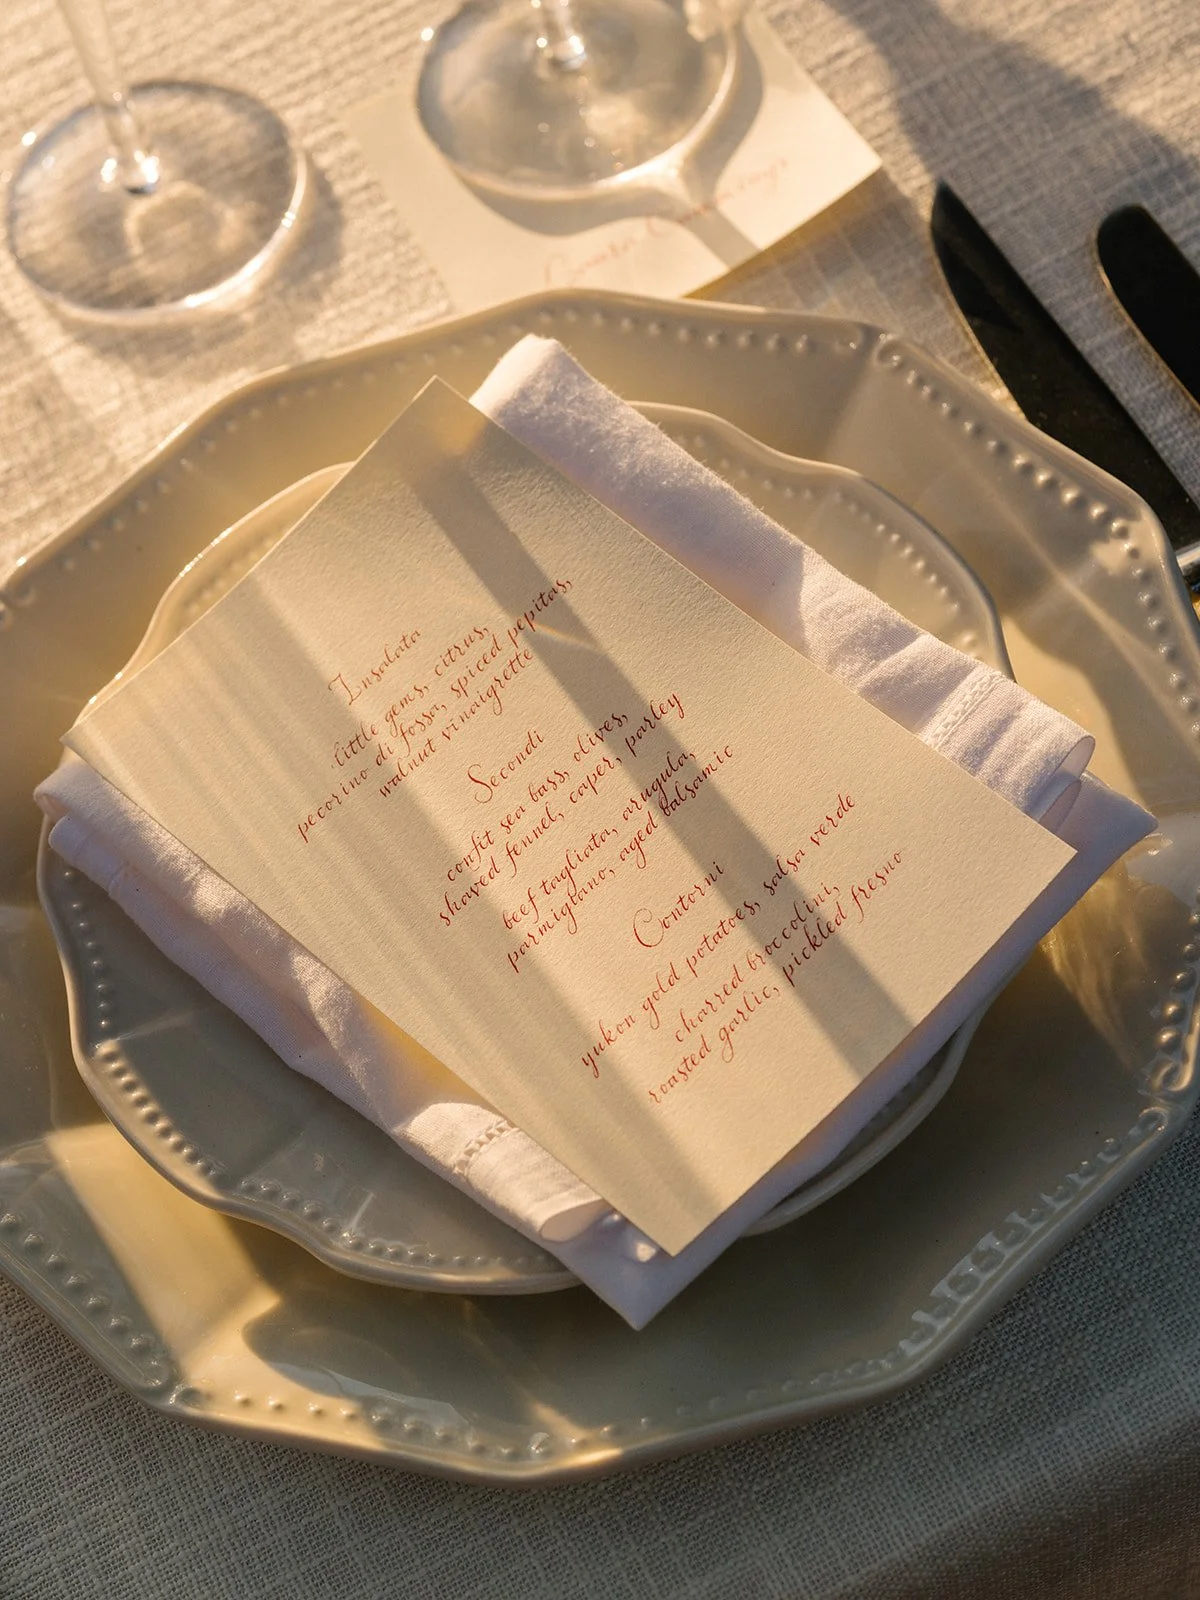 Insalata
little gems, citrus,
pecorino di fossa, spiced pepitas,
walnut vinaigrette
Secondi
confit sea bass, olives,
shaved fennel, caper, parley
beef tagliata, arugula,
parmigiano, aged balsamic
Contorni
yukon gold potatoes, salsa verde
charred broccolini,
roasted garlic, pickled fresno